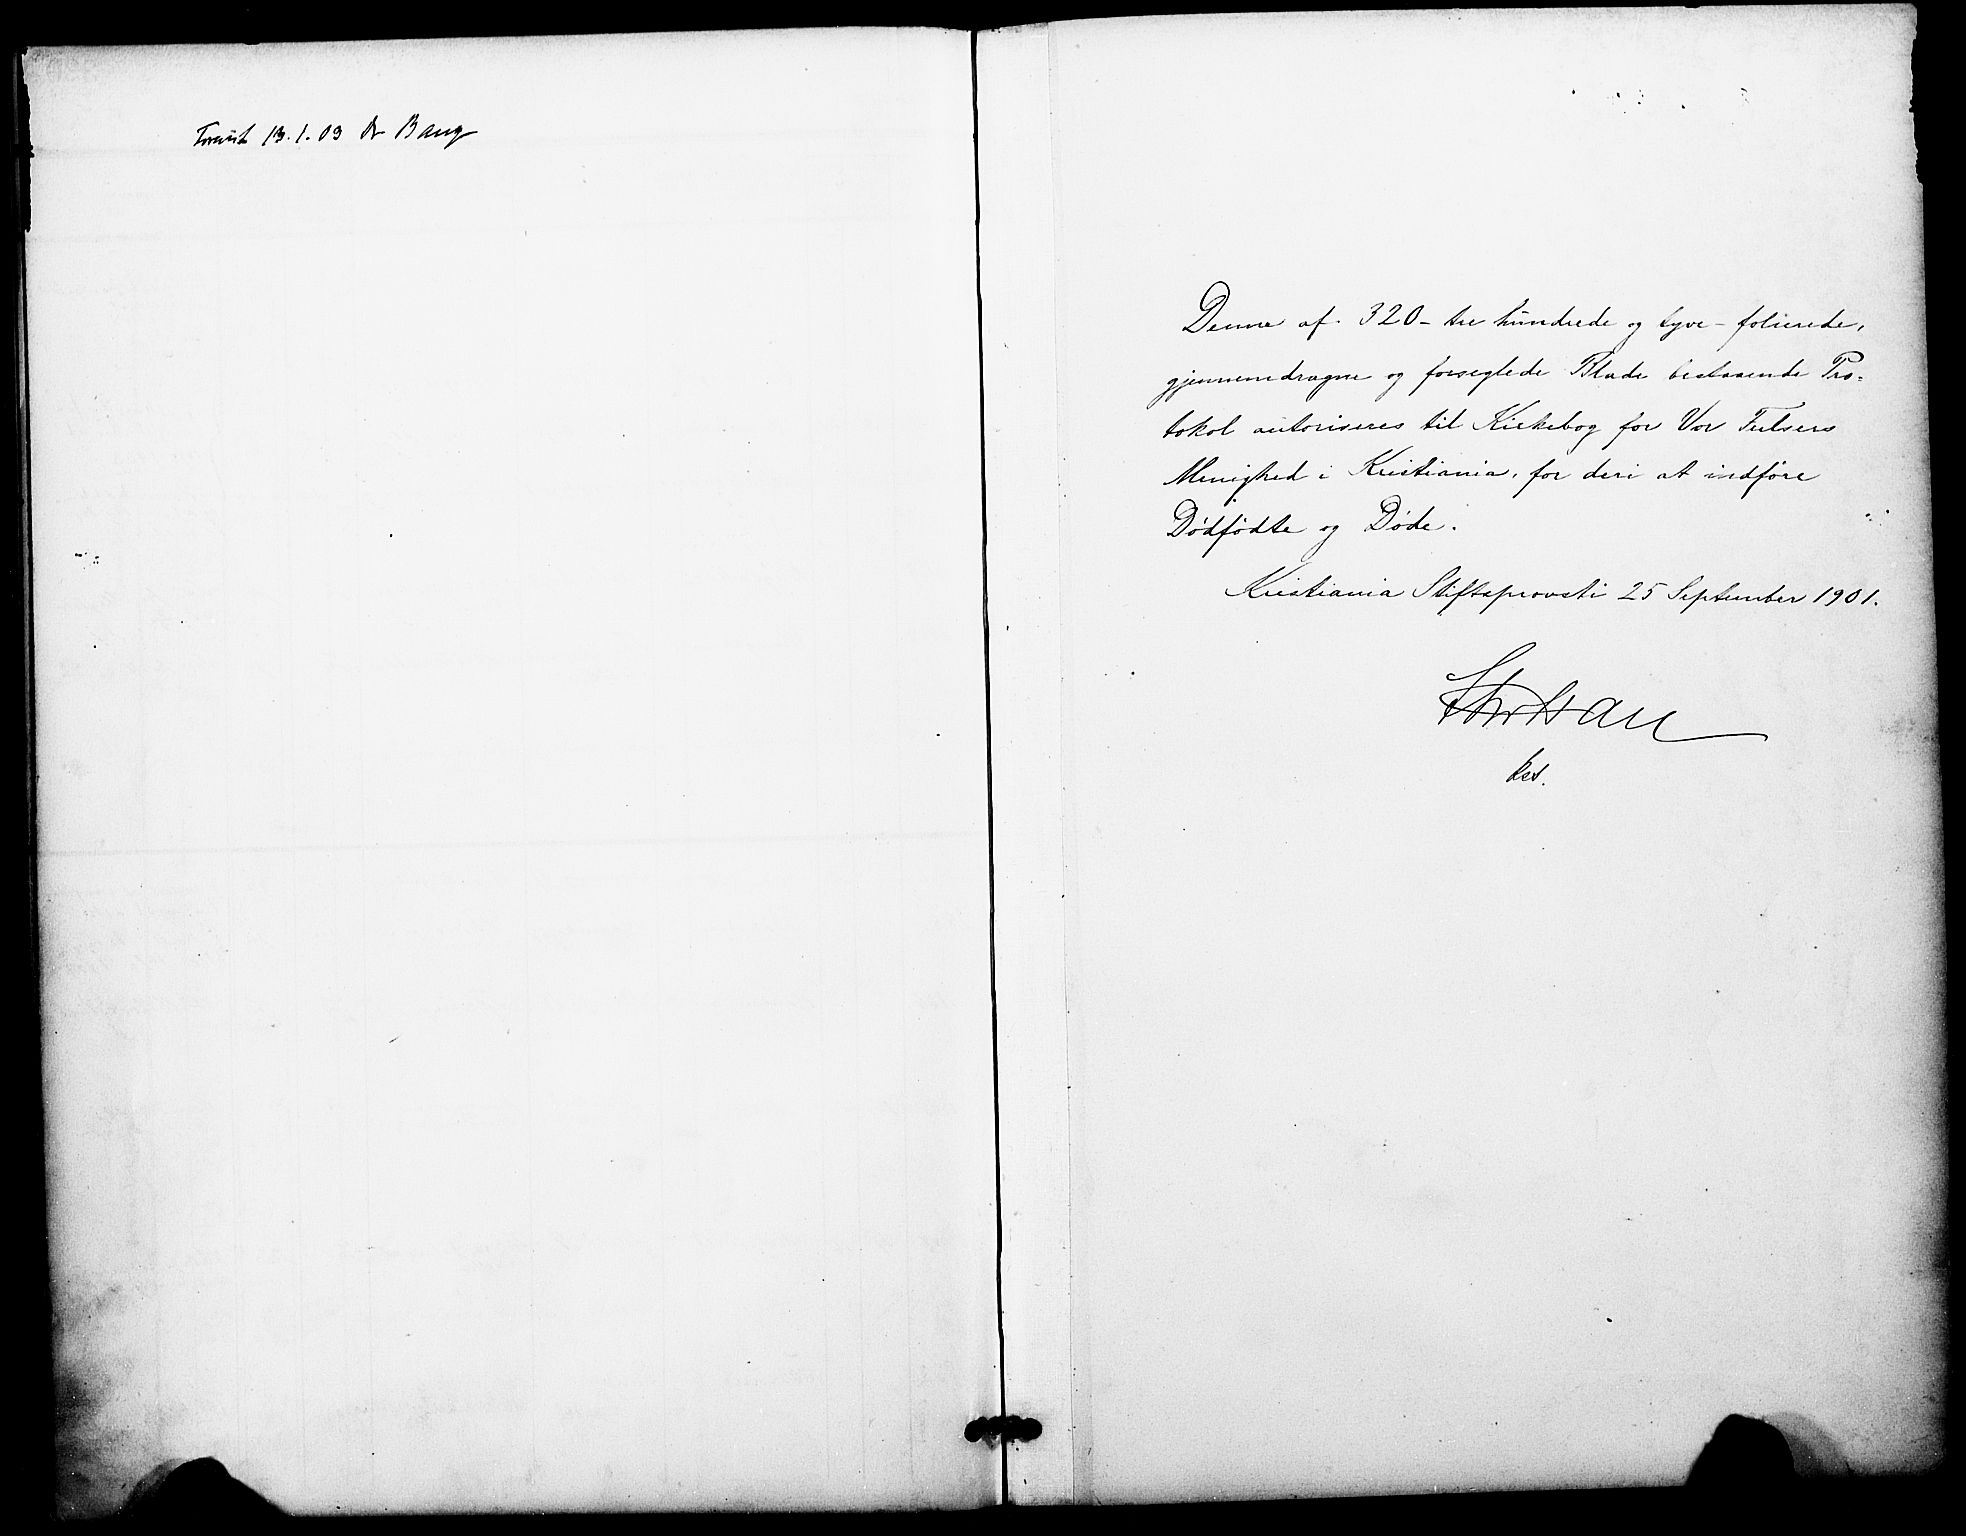 13.1.03 Dr Bang
Denne af 320 – tre hundrede og tyve – folierede,
gjennemdragne og forseglede Blade bestaaende Pro=
tokol autoriseres til Kirkebog for Vor Frelsers
Menighed i Kristiania, for deri at indføre
Dødfødte og Døde.
Kristiania Stiftsprovsti 25 September 1901.